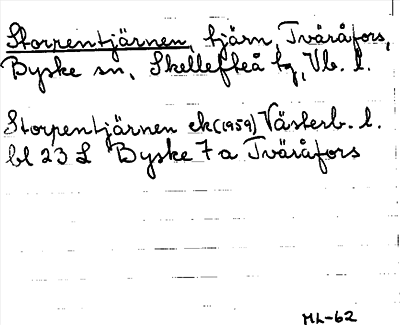 Storpentjärnen, tjärn, Tvåråfors,
Byske sn, Skellefteå tg, Vb. l.
Storpentjärnen ek (1959) Västerb. l.
bl 23 L Byske 7 a Tvåråfors
ML-62